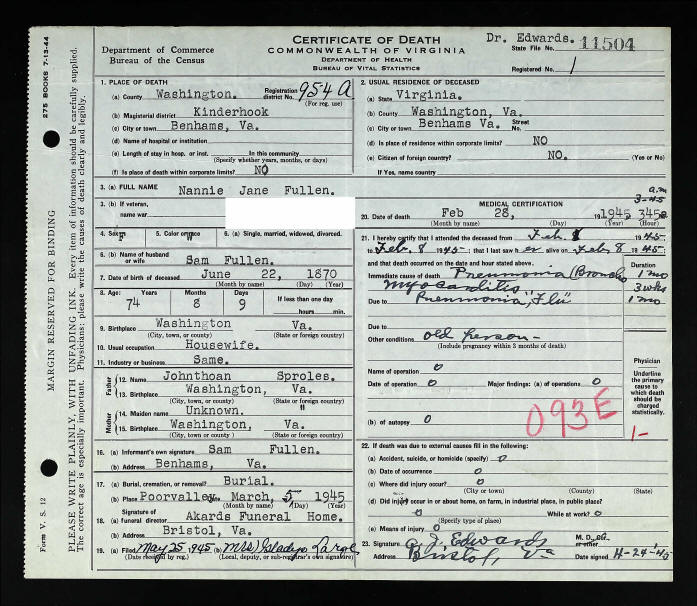 CERTIFICATE OF DEATH
COMMONWEALTH OF VIRGINIA
DEPARTMENT OF HEALTH
BUREAU OF VITAL STATISTICS
Department of Commerce
Bureau of the Census
Dr. Edwards.
State File No. 11504
Registered No. 1
275 BOOKS 7-13-44
MARGIN RESERVED FOR BINDING
PLEASE WRITE PLAINLY, WITH UNFADING INK. Every item of information should be carefully supplied.
The correct age is especially important. Physicians: please write the causes of death clearly and legibly.
Form V. S. 12
1. PLACE OF DEATH
(a) County Washington. Registration district No. 954A
(For reg. use)
(b) Magisterial district Kinderhook
(c) City or town Benhams, Va.
(d) Name of hospital or institution
(e) Length of stay in hosp. or inst. In this community
(Specify whether years, months, or days)
(f) Is place of death within corporate limits? NO
2. USUAL RESIDENCE OF DECEASED
(a) State Virginia.
(b) County Washington, Va.
(c) City or town Benhams Va. Street No.
(d) Is place of residence within corporate limits? NO
(e) Citizen of foreign country? NO. (Yes or No)
If Yes, name country
3. (a) FULL NAME Nannie Jane Fullen.
3. (b) If veteran,
name war
4. Sex F 5. Color or W 6. (a) Single, married, widowed, divorced.
6. (b) Name of husband or wife Sam Fullen.
7. Date of birth of deceased June 22, 1870
(Month by name) (Day) (Year)
8. Age: Years Months Days If less than one day
74 8 9 hours min.
9. Birthplace Washington Va.
(City, town, or county) (State or foreign country)
10. Usual occupation Housewife.
11. Industry or business Same.
Father
12. Name Johnthoan Sproles.
13. Birthplace Washington, Va.
(City, town, or county) (State or foreign country)
Mother
14. Maiden name Unknown. "
15. Birthplace Washington, Va.
(City, town, or county) (State or foreign country)
16. (a) Informant's own signature Sam Fullen.
(b) Address Benhams, Va.
17. (a) Burial, cremation, or removal? Burial.
(b) Place Poorvalley March, 5 1945
(Month by name) (Day) (Year)
18. (a) Signature of funeral director Akards Funeral Home.
(b) Address Bristol, Va.
19. (a) Filed May 25, 1945 (b) Mrs Gladys
(Date received by reg.) (Local, deputy, or sub-registrar's own signature)
MEDICAL CERTIFICATION
a.m
3-45
20. Date of death Feb 28, 1945, 345a
(Month by name) (Day) (Year) (Hour)
21. I hereby certify that I attended the deceased from Feb. 1945
to Feb. 8 1945; that I last saw her alive on Feb 8 1945
and that death occurred on the date and hour stated above. Duration
Immediate cause of death Pneumonia (Broncho 1 mo
Myocarditis 3 wks
Due to Pneumonia, "Flu" 1 mo
Due to
Other conditions old person-
(Include pregnancy within 3 months of death)
Name of operation 0
Date of operation 0 Major findings: (a) of operations 0
(b) of autopsy 0
Physician
Underline the primary cause to which death should be charged statistically.
093E
1-
22. If death was due to external causes fill in the following:
(a) Accident, suicide, or homicide (specify) 0
(b) Date of occurrence 0
(c) Where did injury occur? 0
(City or town) (County) (State)
(d) Did injury occur in or about home, on farm, in industrial place, in public place?
0 While at work? 0
(Specify type of place)
(e) Means of injury 0
23. Signature G. J. Edwards M. D.
or other
Address Bristol, Va Date signed 4-24-45